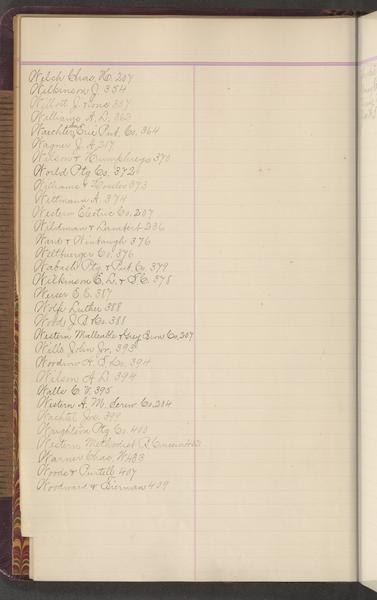 Welch Chas. H. 207
Wilkinson J. 354
Willott J. & Sons 357
Williams A. L. 363
Waechter Erie Pub. Co. 364
Wagner J. A. 217
Wilson & Humphreys 370
World Ptg Co. 372
Williams & 373
Wittmann A. 374
Western Electric Co. 207
Wildman & Lambert 236
Ward & Winbaugh 376
Weltbuerger Co. 376
Wabash Ptg & Pub Co 379
Wilkinson E. L. & 378
Weiser E. E. 387
Wolf Luther 388
Woods J. B. & Co. 388
Western Malleable & Grey Iron Co. 207
Wills John Jr. 393
Woodrow H. S. Co. 394
Wilson A. L. 394
Walls C. V. 395
Western A. M. Screw Co. 204
Wachtel Jos. 399
Ptg Co. 400
Western Methodist B. Concern 402
Warner Chas. W. 433
Woods & Purtell 407
Woodward & Tiernan 409